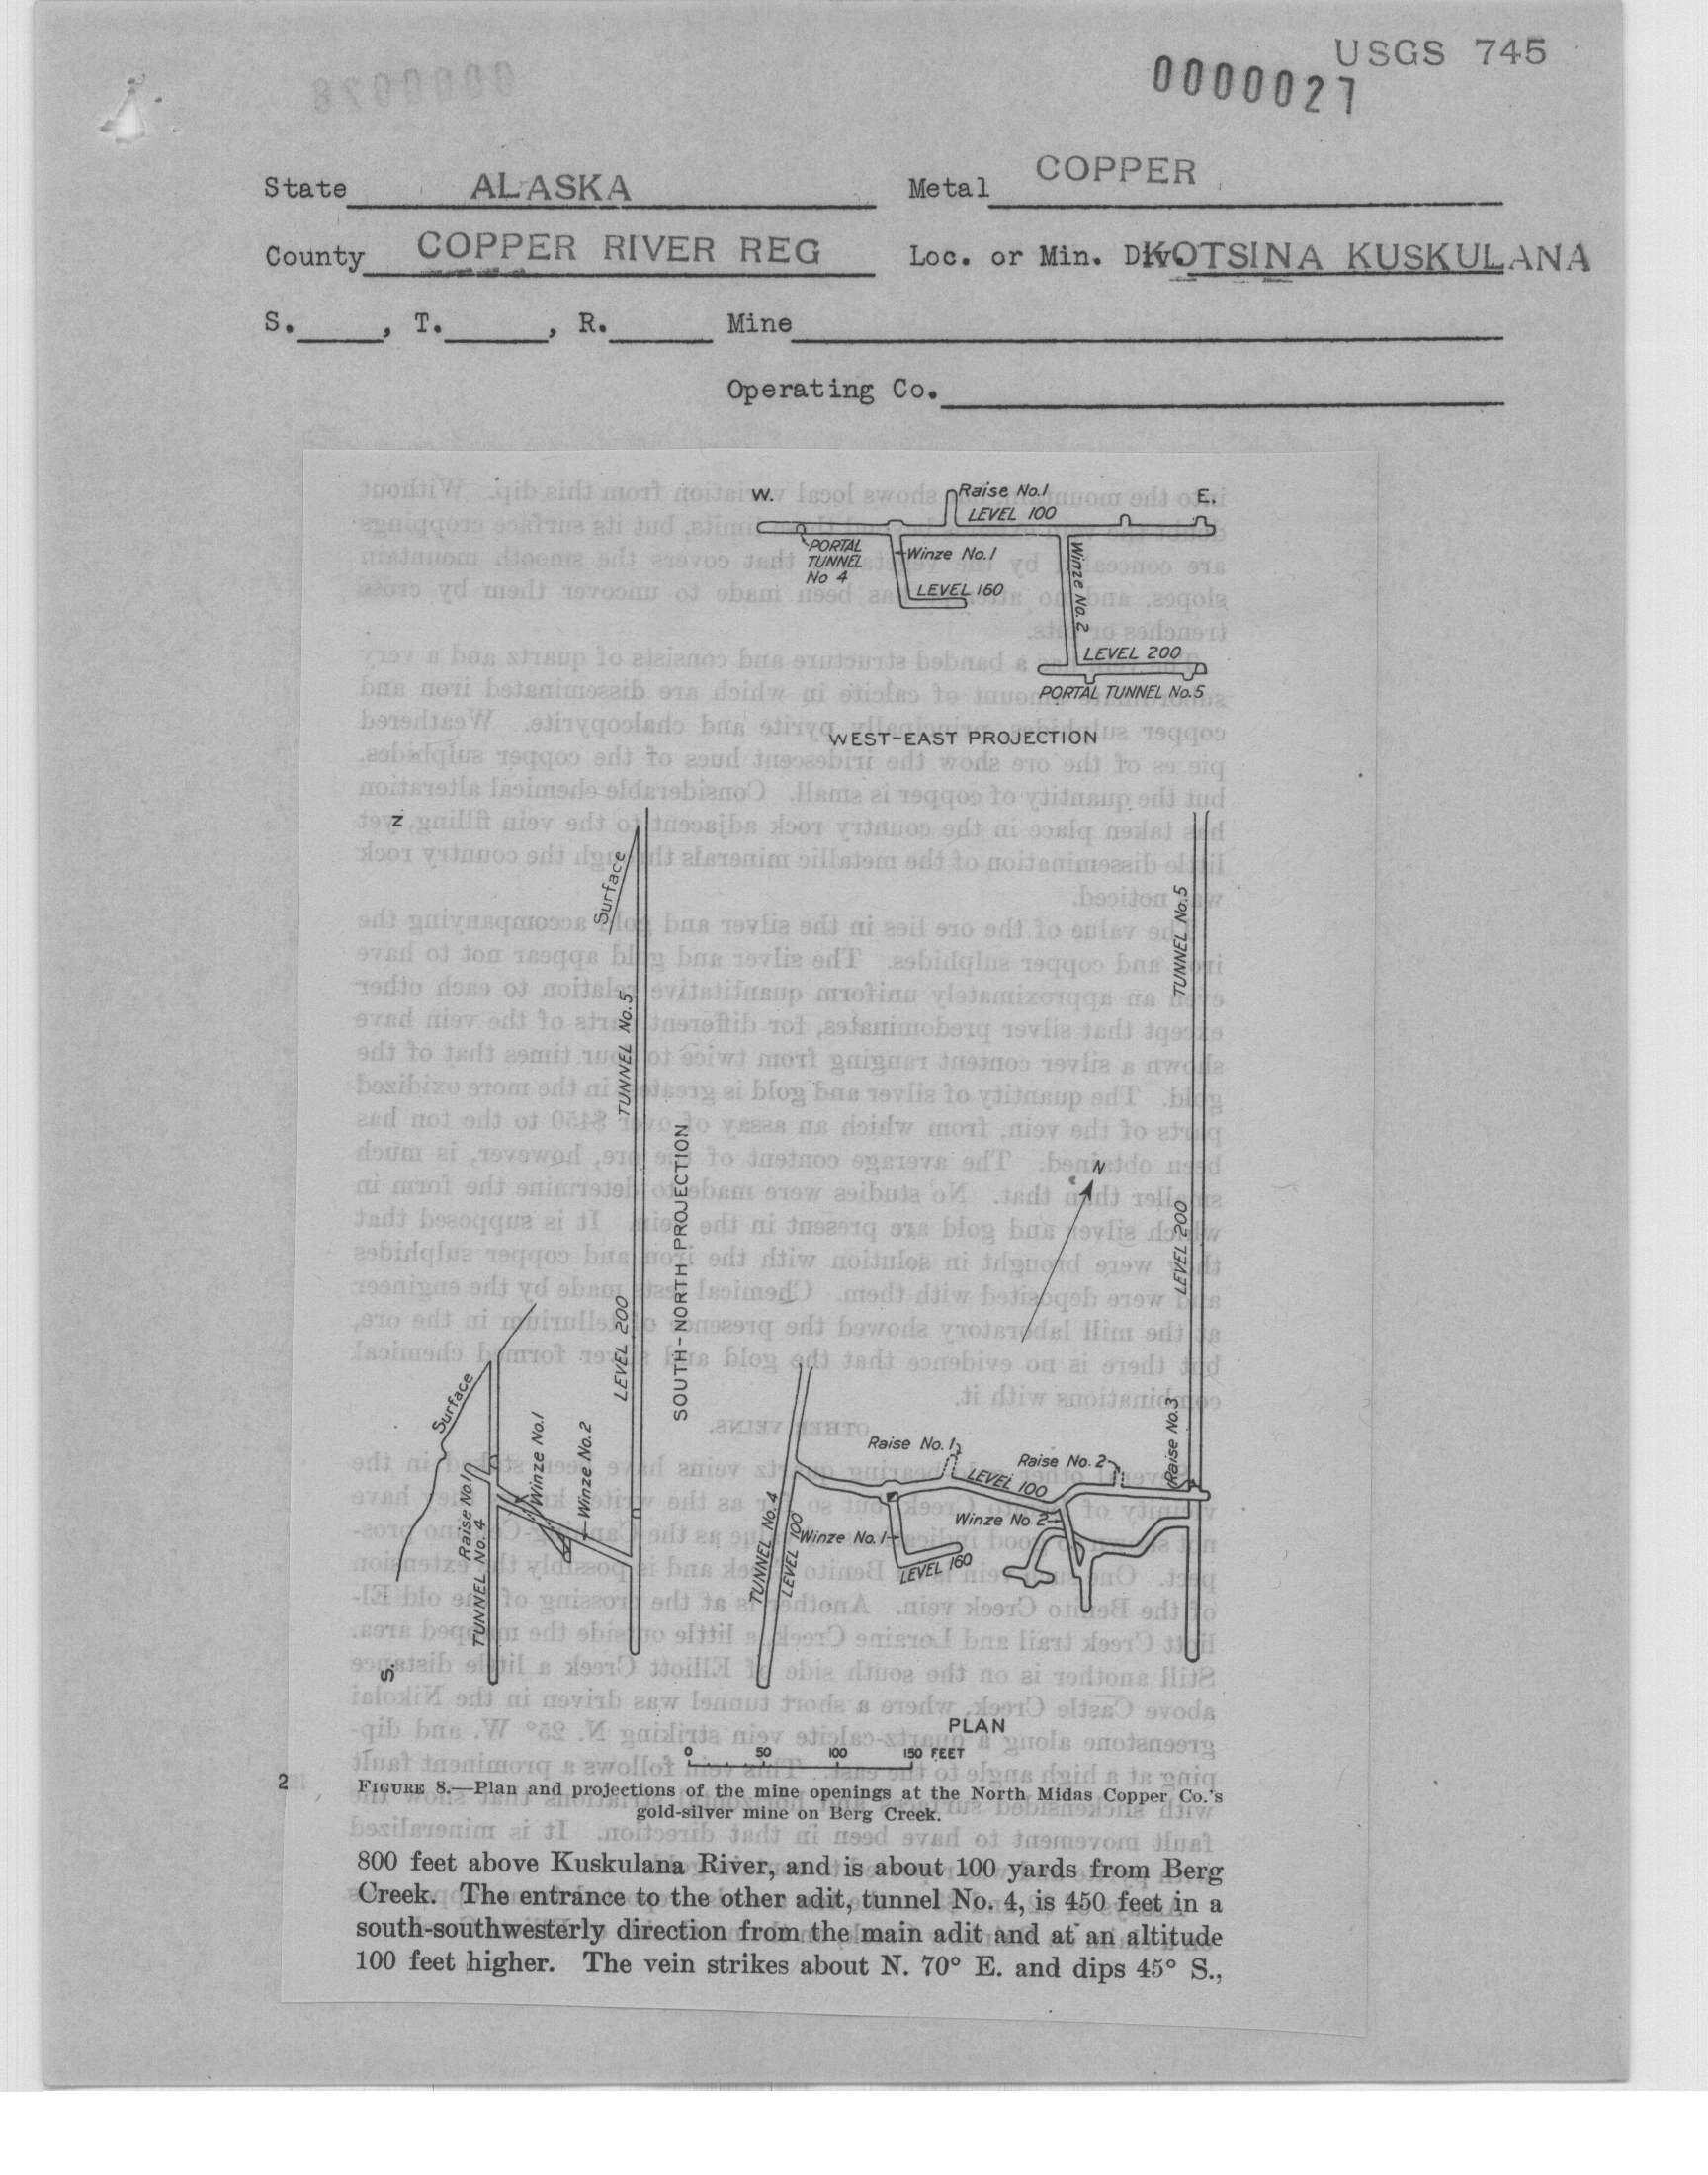 USGS 745
0000027
0000028
State ALASKA
Metal COPPER
County COPPER RIVER REG
Loc. or Min. Div. KOTSINA KUSKULANA
S. , T. , R. Mine
Operating Co.
W.
Raise No.1
E.
LEVEL 100
PORTAL
TUNNEL
No 4
Winze No.1
LEVEL 160
Winze No.2
LEVEL 200
PORTAL TUNNEL No.5
WEST-EAST PROJECTION
N
Surface
TUNNEL No.5
LEVEL 200
SOUTH-NORTH PROJECTION
Surface
Raise No.1
TUNNEL No. 4
Winze No.1
Winze No.2
S.
N
TUNNEL No.5
LEVEL 200
Raise No.3
Raise No. 1
Raise No. 2
LEVEL 100
Winze No 2
Winze No. 1
LEVEL 160
TUNNEL No. 4
LEVEL 100
PLAN
0 50 100 150 FEET
2
FIGURE 8.—Plan and projections of the mine openings at the North Midas Copper Co.'s
gold-silver mine on Berg Creek.
800 feet above Kuskulana River, and is about 100 yards from Berg
Creek. The entrance to the other adit, tunnel No. 4, is 450 feet in a
south-southwesterly direction from the main adit and at an altitude
100 feet higher. The vein strikes about N. 70° E. and dips 45° S.,